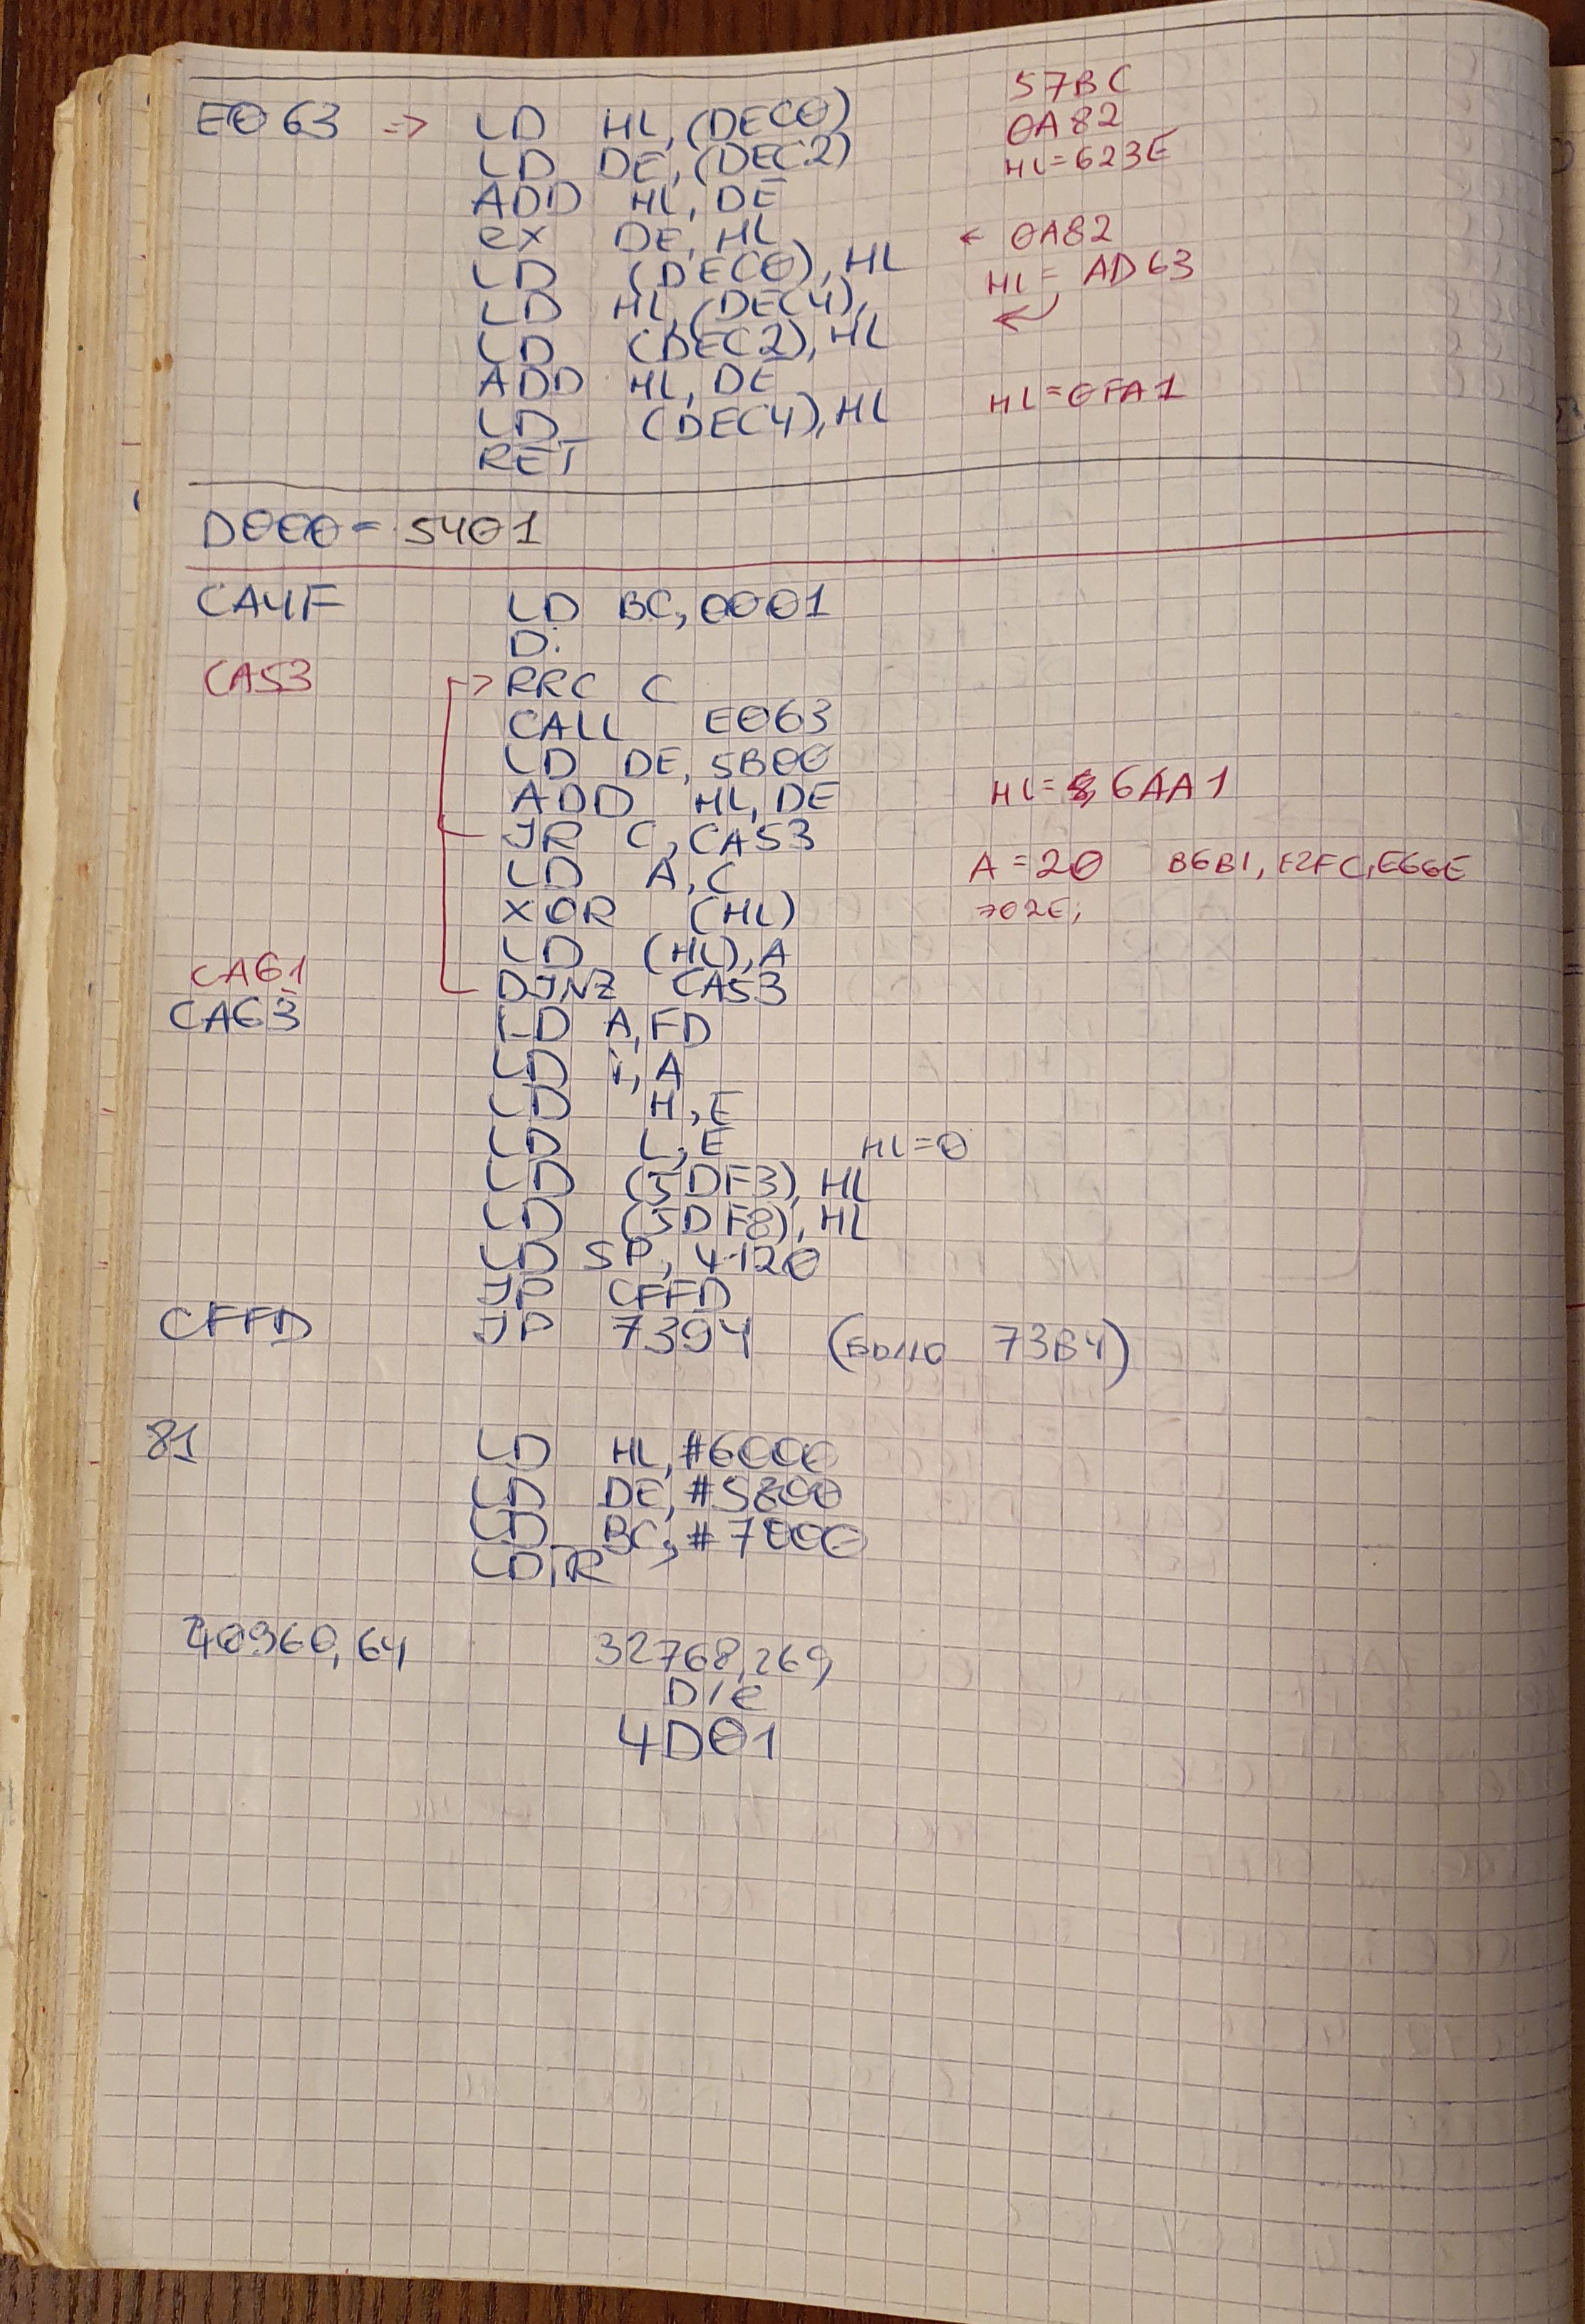 57BC
E063 => LD HL,(DEC0) 0A82
LD DE,(DEC2) HL=623E
ADD HL,DE
ex DE,HL ← 0A82
LD (DEC0),HL HL = AD63
LD HL,(DEC4), ←
LD (DEC2),HL
ADD HL,DE
LD (DEC4),HL HL=0FA1
RET
D000 = 5401
CA4F LD BC,0001
D.
CA53 RRC C
CALL E063
LD DE,5B00
ADD HL,DE HL= 6AA1
JR C,CA53
LD A,C A=20 B6B1, E2FC, E66E
XOR (HL) 702E;
LD (HL),A
CA61 DJNZ CA53
CA63 LD A,FD
LD i,A
LD H,E
LD L,E HL=0
LD (5DF3),HL
LD (5DF8),HL
LD SP,4120
JP CFFD
CFFD JP 7394 (было 73B4)
81 LD HL,#6000
LD DE,#5B00
LD BC,#7000
LDIR
40960,64 32768,269,
D/e
4D01